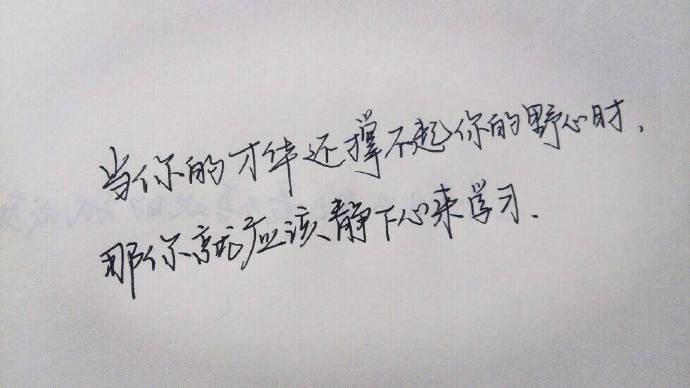 当你的才华还撑不起你的野心时,
那你就应该静下心来学习.